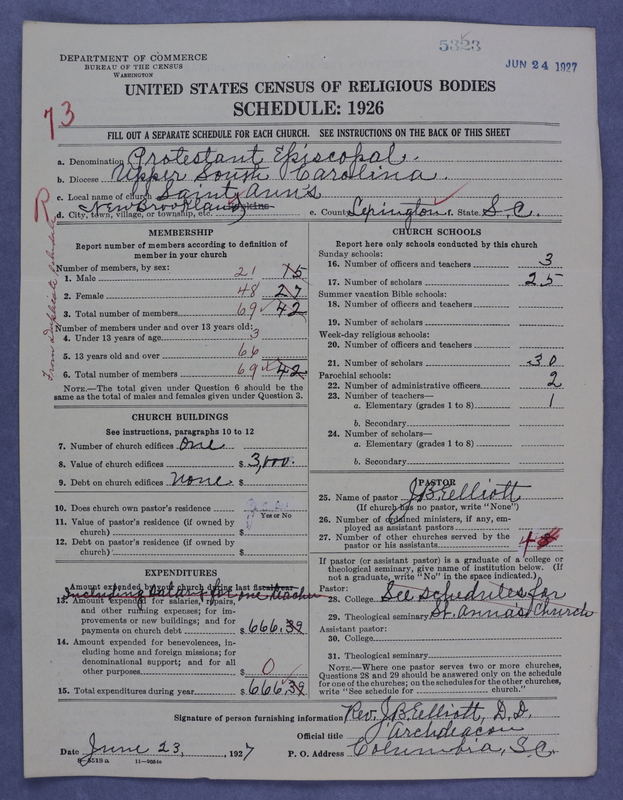 5323
JUN 24 1927
DEPARTMENT OF COMMERCE
BUREAU OF THE CENSUS
WASHINGTON
UNITED STATES CENSUS OF RELIGIOUS BODIES
SCHEDULE: 1926
73
FILL OUT A SEPARATE SCHEDULE FOR EACH CHURCH. SEE INSTRUCTIONS ON THE BACK OF THIS SHEET
a. Denomination Protestant Episcopal.
b. Diocese Upper South Carolina.
c. Local name of church Saint Ann's
d. City, town, village, or township, etc. New Brookland e. County Lexington f. State S.C.
R
From duplicate schedule
MEMBERSHIP
Report number of members according to definition of
member in your church
Number of members, by sex:
1. Male 21 15
2. Female 48 27
3. Total number of members 69 42
Number of members under and over 13 years old:
4. Under 13 years of age 3
5. 13 years old and over 66
6. Total number of members 69 42
NOTE.—The total given under Question 6 should be the
same as the total of males and females given under Question 3.
CHURCH BUILDINGS
See instructions, paragraphs 10 to 12
7. Number of church edifices One
8. Value of church edifices $ 3,000.
9. Debt on church edifices None $
10. Does church own pastor's residence
Yes or No
11. Value of pastor's residence (if owned by
church) $
12. Debt on pastor's residence (if owned by
church) $
EXPENDITURES
Amount expended by your church during last fiscal year
including salary for one teacher
13. Amount expended for salaries, repairs,
and other running expenses; for im-
provements or new buildings; and for
payments on church debt $ 666.39
14. Amount expended for benevolences, in-
cluding home and foreign missions; for
denominational support; and for all
other purposes $ 0
15. Total expenditures during year $ 666.39
CHURCH SCHOOLS
Report here only schools conducted by this church
Sunday schools:
16. Number of officers and teachers 3
17. Number of scholars 25
Summer vacation Bible schools:
18. Number of officers and teachers
19. Number of scholars
Week-day religious schools:
20. Number of officers and teachers
21. Number of scholars 30
Parochial schools:
22. Number of administrative officers 2
23. Number of teachers—
a. Elementary (grades 1 to 8) 1
b. Secondary
24. Number of scholars—
a. Elementary (grades 1 to 8)
b. Secondary
PASTOR
25. Name of pastor J B Elliott
(If church has no pastor, write "None")
26. Number of ordained ministers, if any, em-
ployed as assistant pastors
27. Number of other churches served by the
pastor or his assistants 4
If pastor (or assistant pastor) is a graduate of a college or
theological seminary, give name of institution below. (If
not a graduate, write "No" in the space indicated.)
Pastor:
28. College See schedules for
29. Theological seminary St. Anna's Church
Assistant pastor:
30. College
31. Theological seminary
NOTE.—Where one pastor serves two or more churches,
Questions 28 and 29 should be answered only on the schedule
for one of the churches; on the schedules for the other churches,
write "See schedule for church."
Signature of person furnishing information Rev. J B. Elliott, D.D.
Official title Archdeacon
Date June 23, 1927 P. O. Address Columbia, S.C.
8-5518a 11-9084c